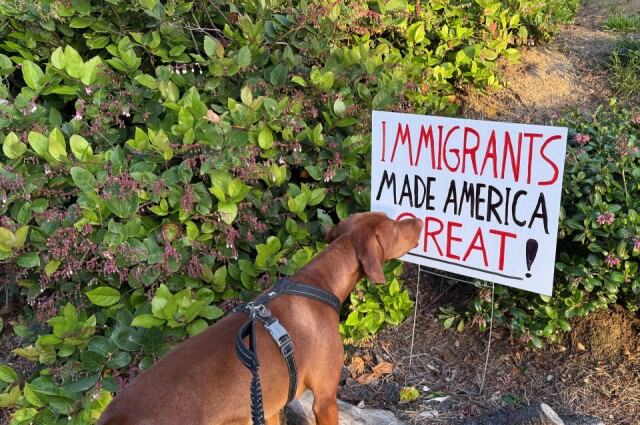 IMMIGRANTS
MADE AMERICA
GREAT!